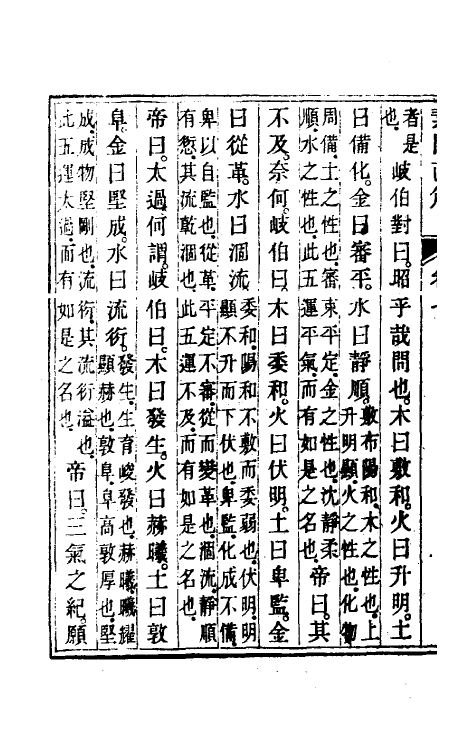 者是
也。
岐伯對曰。昭乎哉問也。木曰敷和。火曰升明。土
曰備化。金曰審平。水曰靜順。
敷布陽和。木之性也。上
升明顯。火之性也。化物
周備。土之性也。審束平定。金之性也。沈靜柔
順。水之性也。此五運平氣。而有如是之名也。
帝曰。其
不及。奈何。岐伯曰。木曰委和。火曰伏明。土曰卑監。金
曰從革。水曰涸流。
委和。陽和不敷而委弱也。伏明。明
顯不升而下伏也。卑監。化成不備。
卑以自監也。從革。平定不審。從而變革也。涸流。靜順
有愆。其流乾涸也。此五運不及。而有如是之名也。
帝曰。太過何謂。岐伯曰。木曰發生。火曰赫曦。土曰敦
阜。金曰堅成。水曰流衍。
發生。生育峻發也。赫曦。曦耀
顯赫也。敦阜。阜高敦厚也。堅
成。成物堅剛也。流衍。其流衍溢也。
此五運太過。而有如是之名也。
帝曰。三氣之紀。願